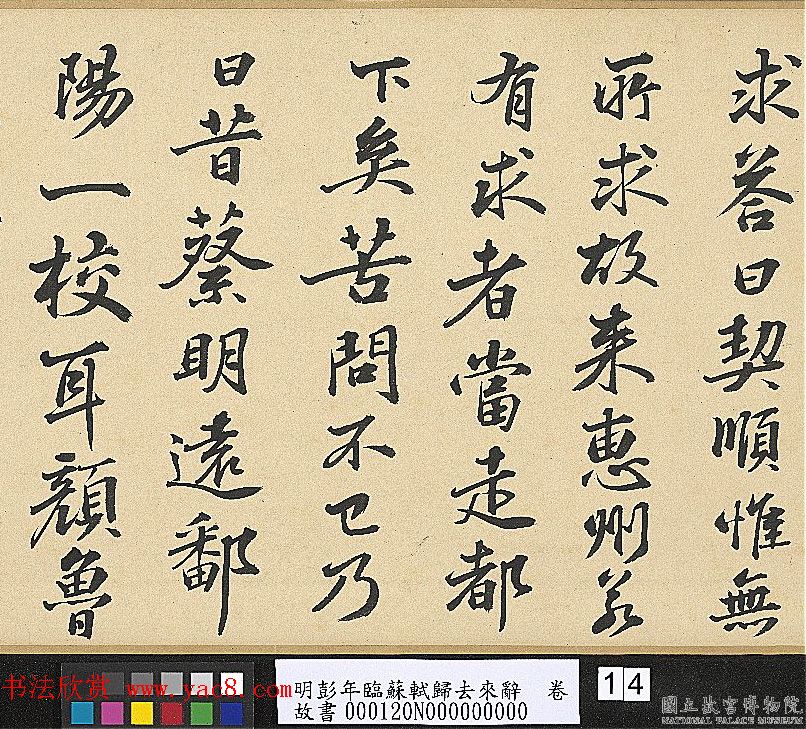 求答曰契順惟無
所求故来惠州若
有求者當走都
下矣苦問不已乃
曰昔蔡明遠鄱
陽一校耳顏魯
书法欣赏 www.yac8.com
明彭年臨蘇軾歸去來辭 卷
故書000120N000000000
14
國立故宮博物院
NATIONAL PALACE MUSEUM